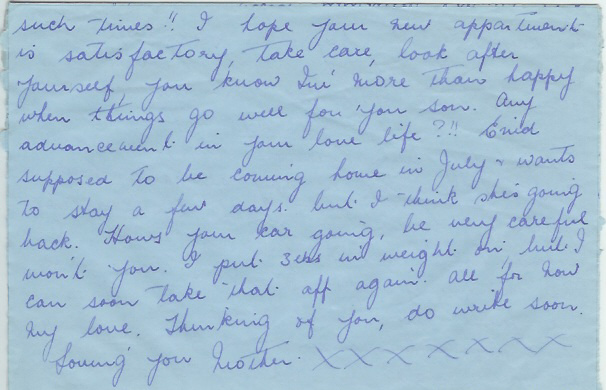 such times!! I hope your new appartment
is satisfactory, take care, look after
yourself, you know I'm more than happy
when things go well for you son. Any
advancement in your love life?!! Enid
supposed to be coming home in July & wants
to stay a few days. but I think she's going
back. Hows your car going, be very careful
won't you. I put 3lbs in weight on but I
can soon take that off again. all for now
my love. Thinking of you, do write soon.
Loving you Mother. XXXXXXX